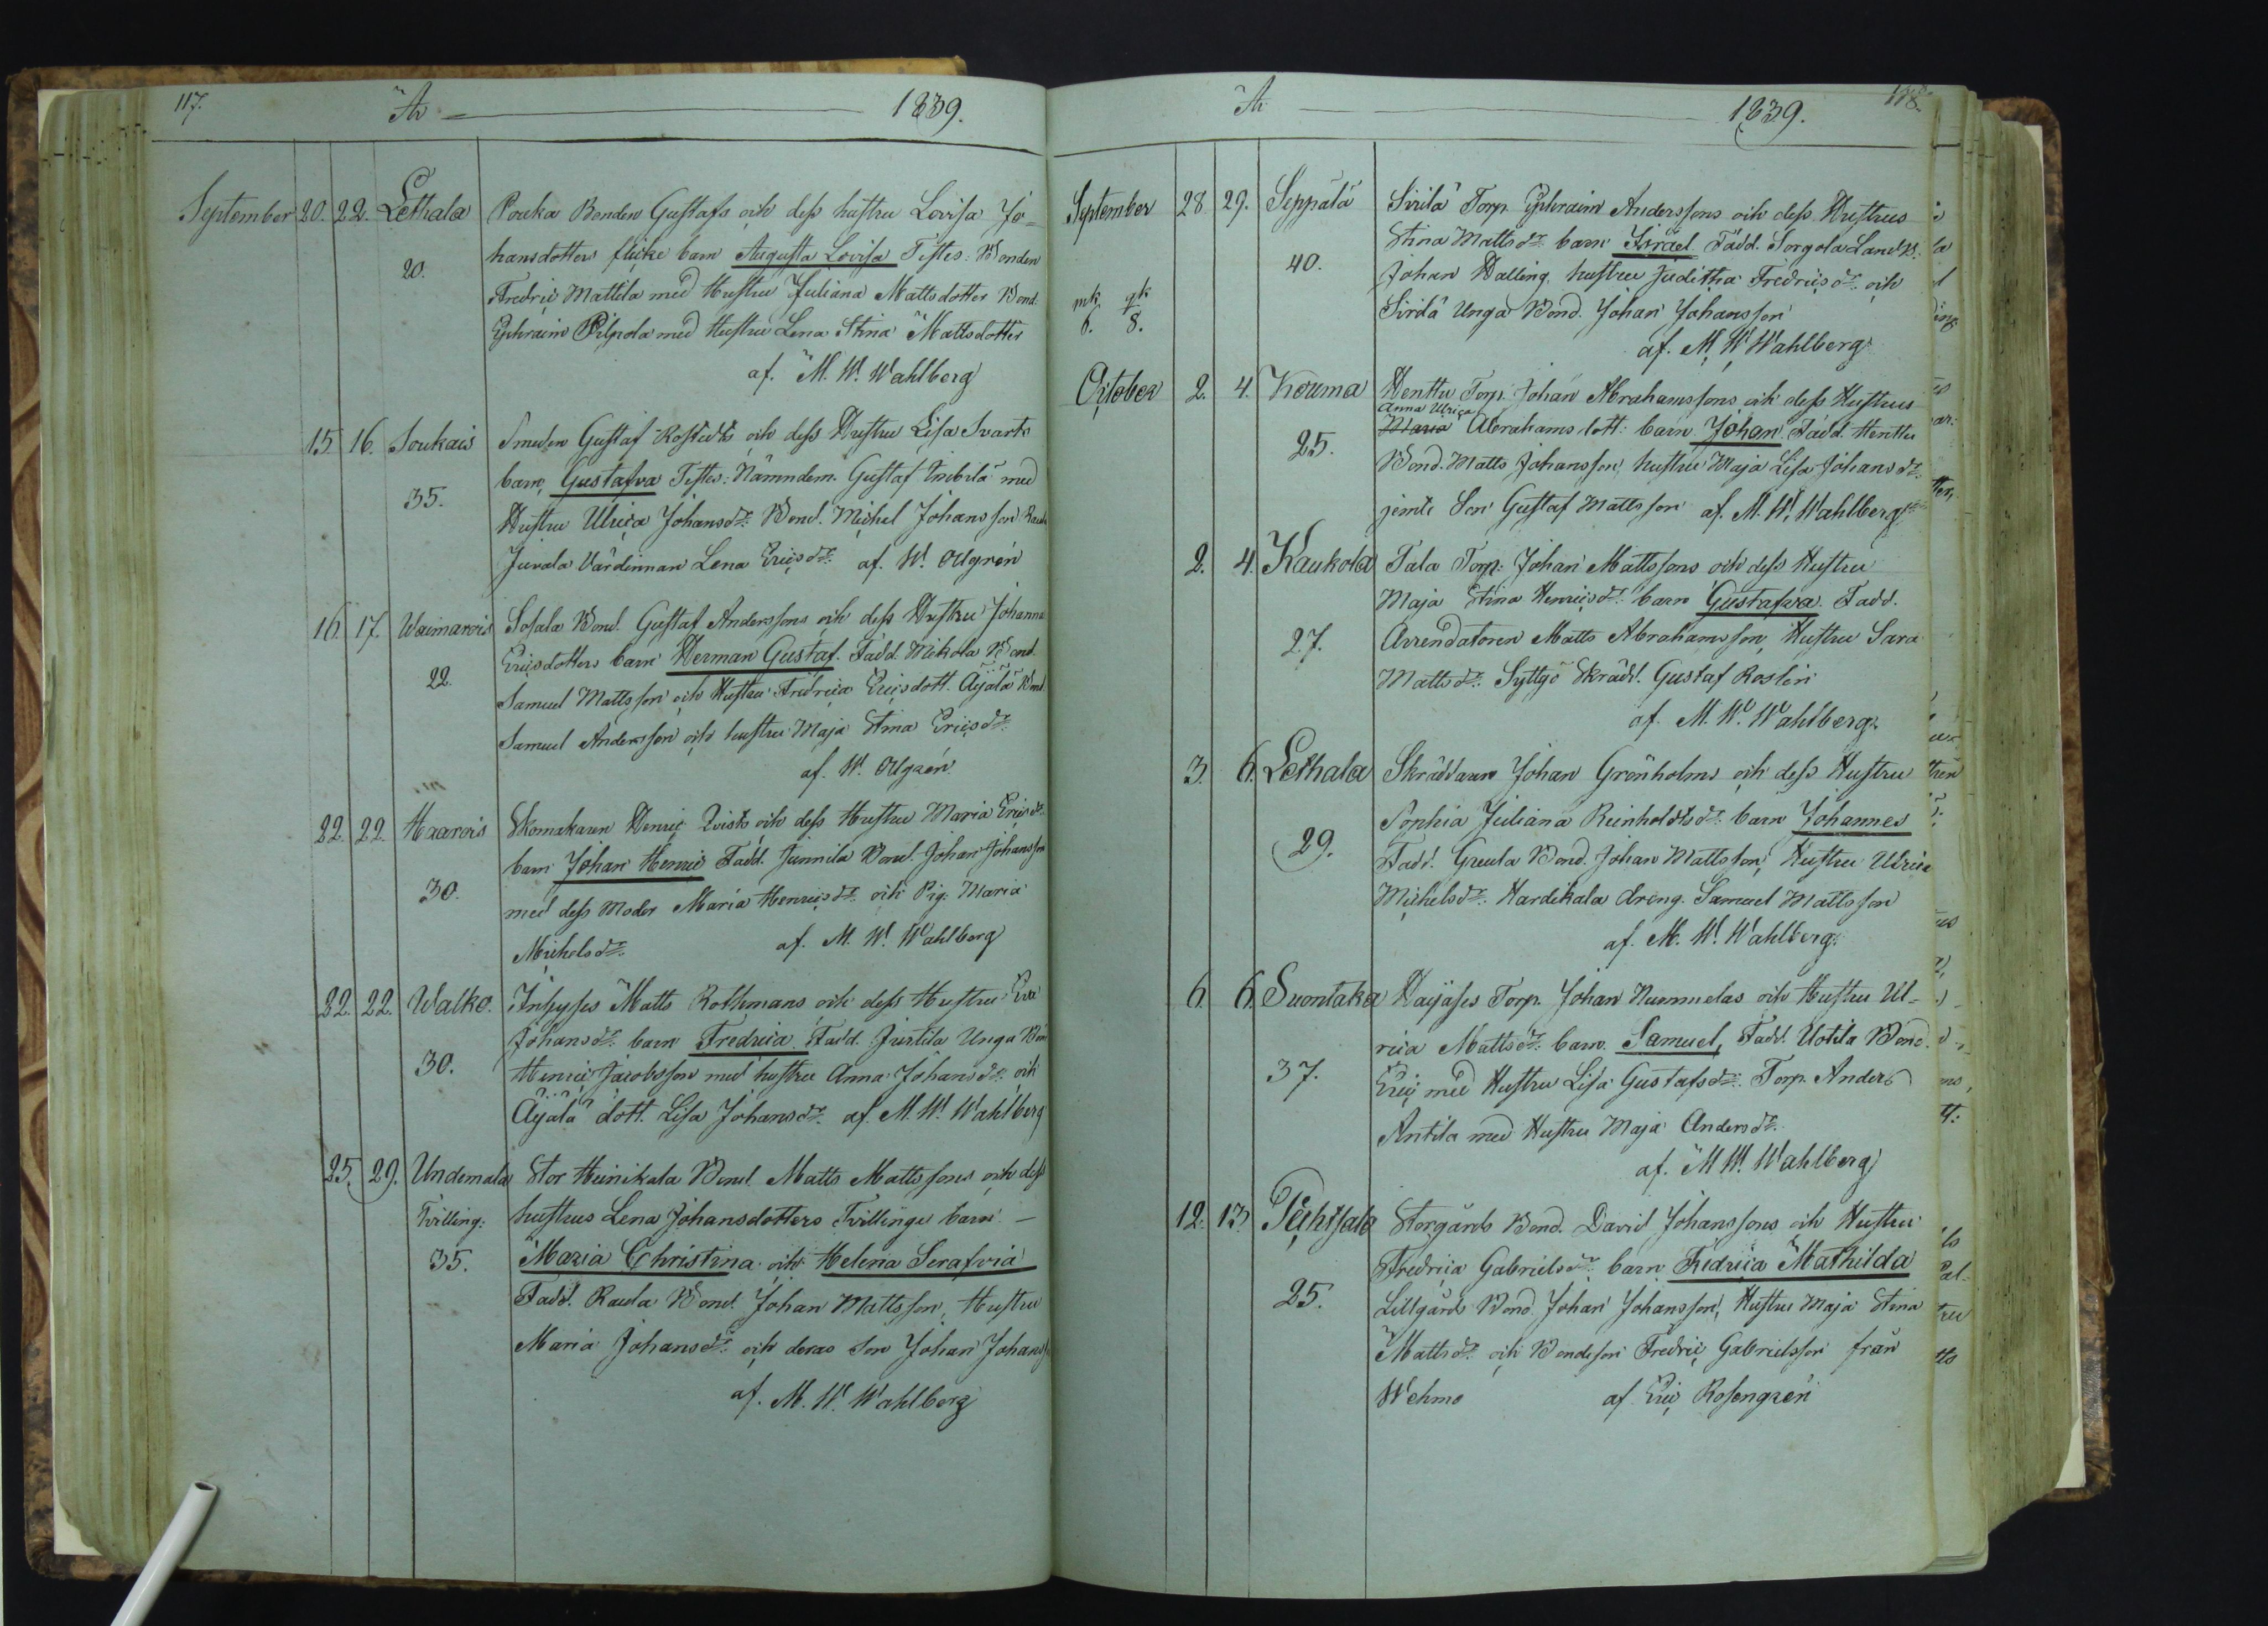 117. År 1839.
September 20. 22. Lethala Pouka Bonden Gustafs och dess hustru Lovisa Jo=
20. hansdotters flicke barn Augusta Lovisa Testes: Bonden
Fredric Mattila med Hustru Juliana Mattsdotter Bond.
Ephraim Pilpola med Hustru Lena Stina Mattsdotter
af. M. W. Wahlberg
15 16. Soukais Smeden Gustaf Rostedts och dess Hustru Lisa Svarts
35. barn Gustafva Testes: Nämndem. Gustaf med
Hustru Ulrica Johansdr. Bond. Michel Johansson
Juvala Värdinnan Lena Ericsdr. af. W. Ollgrén
16 17. Waimarois Sosala Bond. Gustaf Anderssons och dess Hustru Johanna
22. Ericsdotters barn Herman Gustaf. Fadd. Mikola Bond.
Samuel Mattsson och Hustru Fredrica Ericsdott. Äyälä Bond.
Samuel Andersson och hustru Maja Stina Ericsdr.
af. W. Ollgrén
22. 22. Haarois Skomakaren Henric Qvists och dess Hustru Maria Ericsdr.
30. barn Johan Henric Fadd. Junnila Bond. Johan Johansson
med dess Moder Maria Henricsdr. och Pig. Maria
Michelsdr. af. M. W. Wahlberg
22. 22. Walko. Inhyses Matts Rothmans och dess Hustru Eva
30. Johansdr. barn Fredrica Fadd. Junttila Unga Bond
Henric Jacobsson med hustru Anna Johansdr. och
Äyälä dott. Lisa Johansdr. af. M. W. Wahlberg
25. 29. Undemala Stor Heinikala Bond. Matts Mattssons och dess
Tvilling: hustrus Lena Johansdotters Tvillinge barn —
35. Maria Christina och Helena Serafvia
Fadd. Raula Bond. Johan Mattsson, Hustru
Maria Johansdr. och deras Son Johan Johanss
af. M. W. Wahlberg
År 1839. 118.
September 28 29. Seppälä Sirilä Torp. Ephraim Anderssons och dess Hustrus
40. Stina Mattsdr. barn Israel Fadd. Sorgola Landb.
Johan Walling hustru Juditha Fredricsdr. och
mk. qk. Sirilä Unga Bond. Johan Johansson
6. 8. af. M. W. Wahlberg
October 2. 4. Kouma Henttu Torp. Johan Abrahamssons och dess Hustrus
Anna Ulrica
25. Maria Abrahams dott: barn Johan Fadd. Henttu
Bond. Matts Johansson, hustru Maja Lisa Johansdr.
jemte Son Gustaf Mattsson af. M. W. Wahlberg
2. 4. Kaukola Tala Torp: Johan Mattssons och dess Hustru
Maja Stina Henricsdr. barn Gustafva. Fadd.
27. Arrendatoren Matts Abrahamsson, Hustru Sara
Mattsdr. Syttyö Skrädd. Gustaf Roslin
af. M. W. Wahlberg.
3. 6. Lethala Skräddaren Johan Grönholms och dess Hustru
Sophia Juliana Reinholdtsdr. barn Johannes
29. Fadd. Greula Bond. Johan Mattsson, Hustru Ulrica
Michelsdr. Hardikala dreng. Samuel Mattsson
af. M. W. Wahlberg.
6. 6. Suontaka Hayäses Torp. Johan Nummelas och Hustru Ul-
rica Mattsdr. barn Samuel, Fadd. Uotila Bond.
37. Eric med Hustru Lisa Gustafsdr. Torp. Anders
Antila med Hustru Maja Andersdr.
af. M W. Wahlberg
12. 13 Puhtsalo Storgårds Bond. David Johanssons och Hustru
Fredrica Gabrielsdr. barn Fredrica Mathilda
25. Lillgårds Bond. Johan Johansson, Hustru Maja Stina
Mattsdr. och Bondeson Fredric Gabrielsson från
Wehmo af Eric Rosengrén